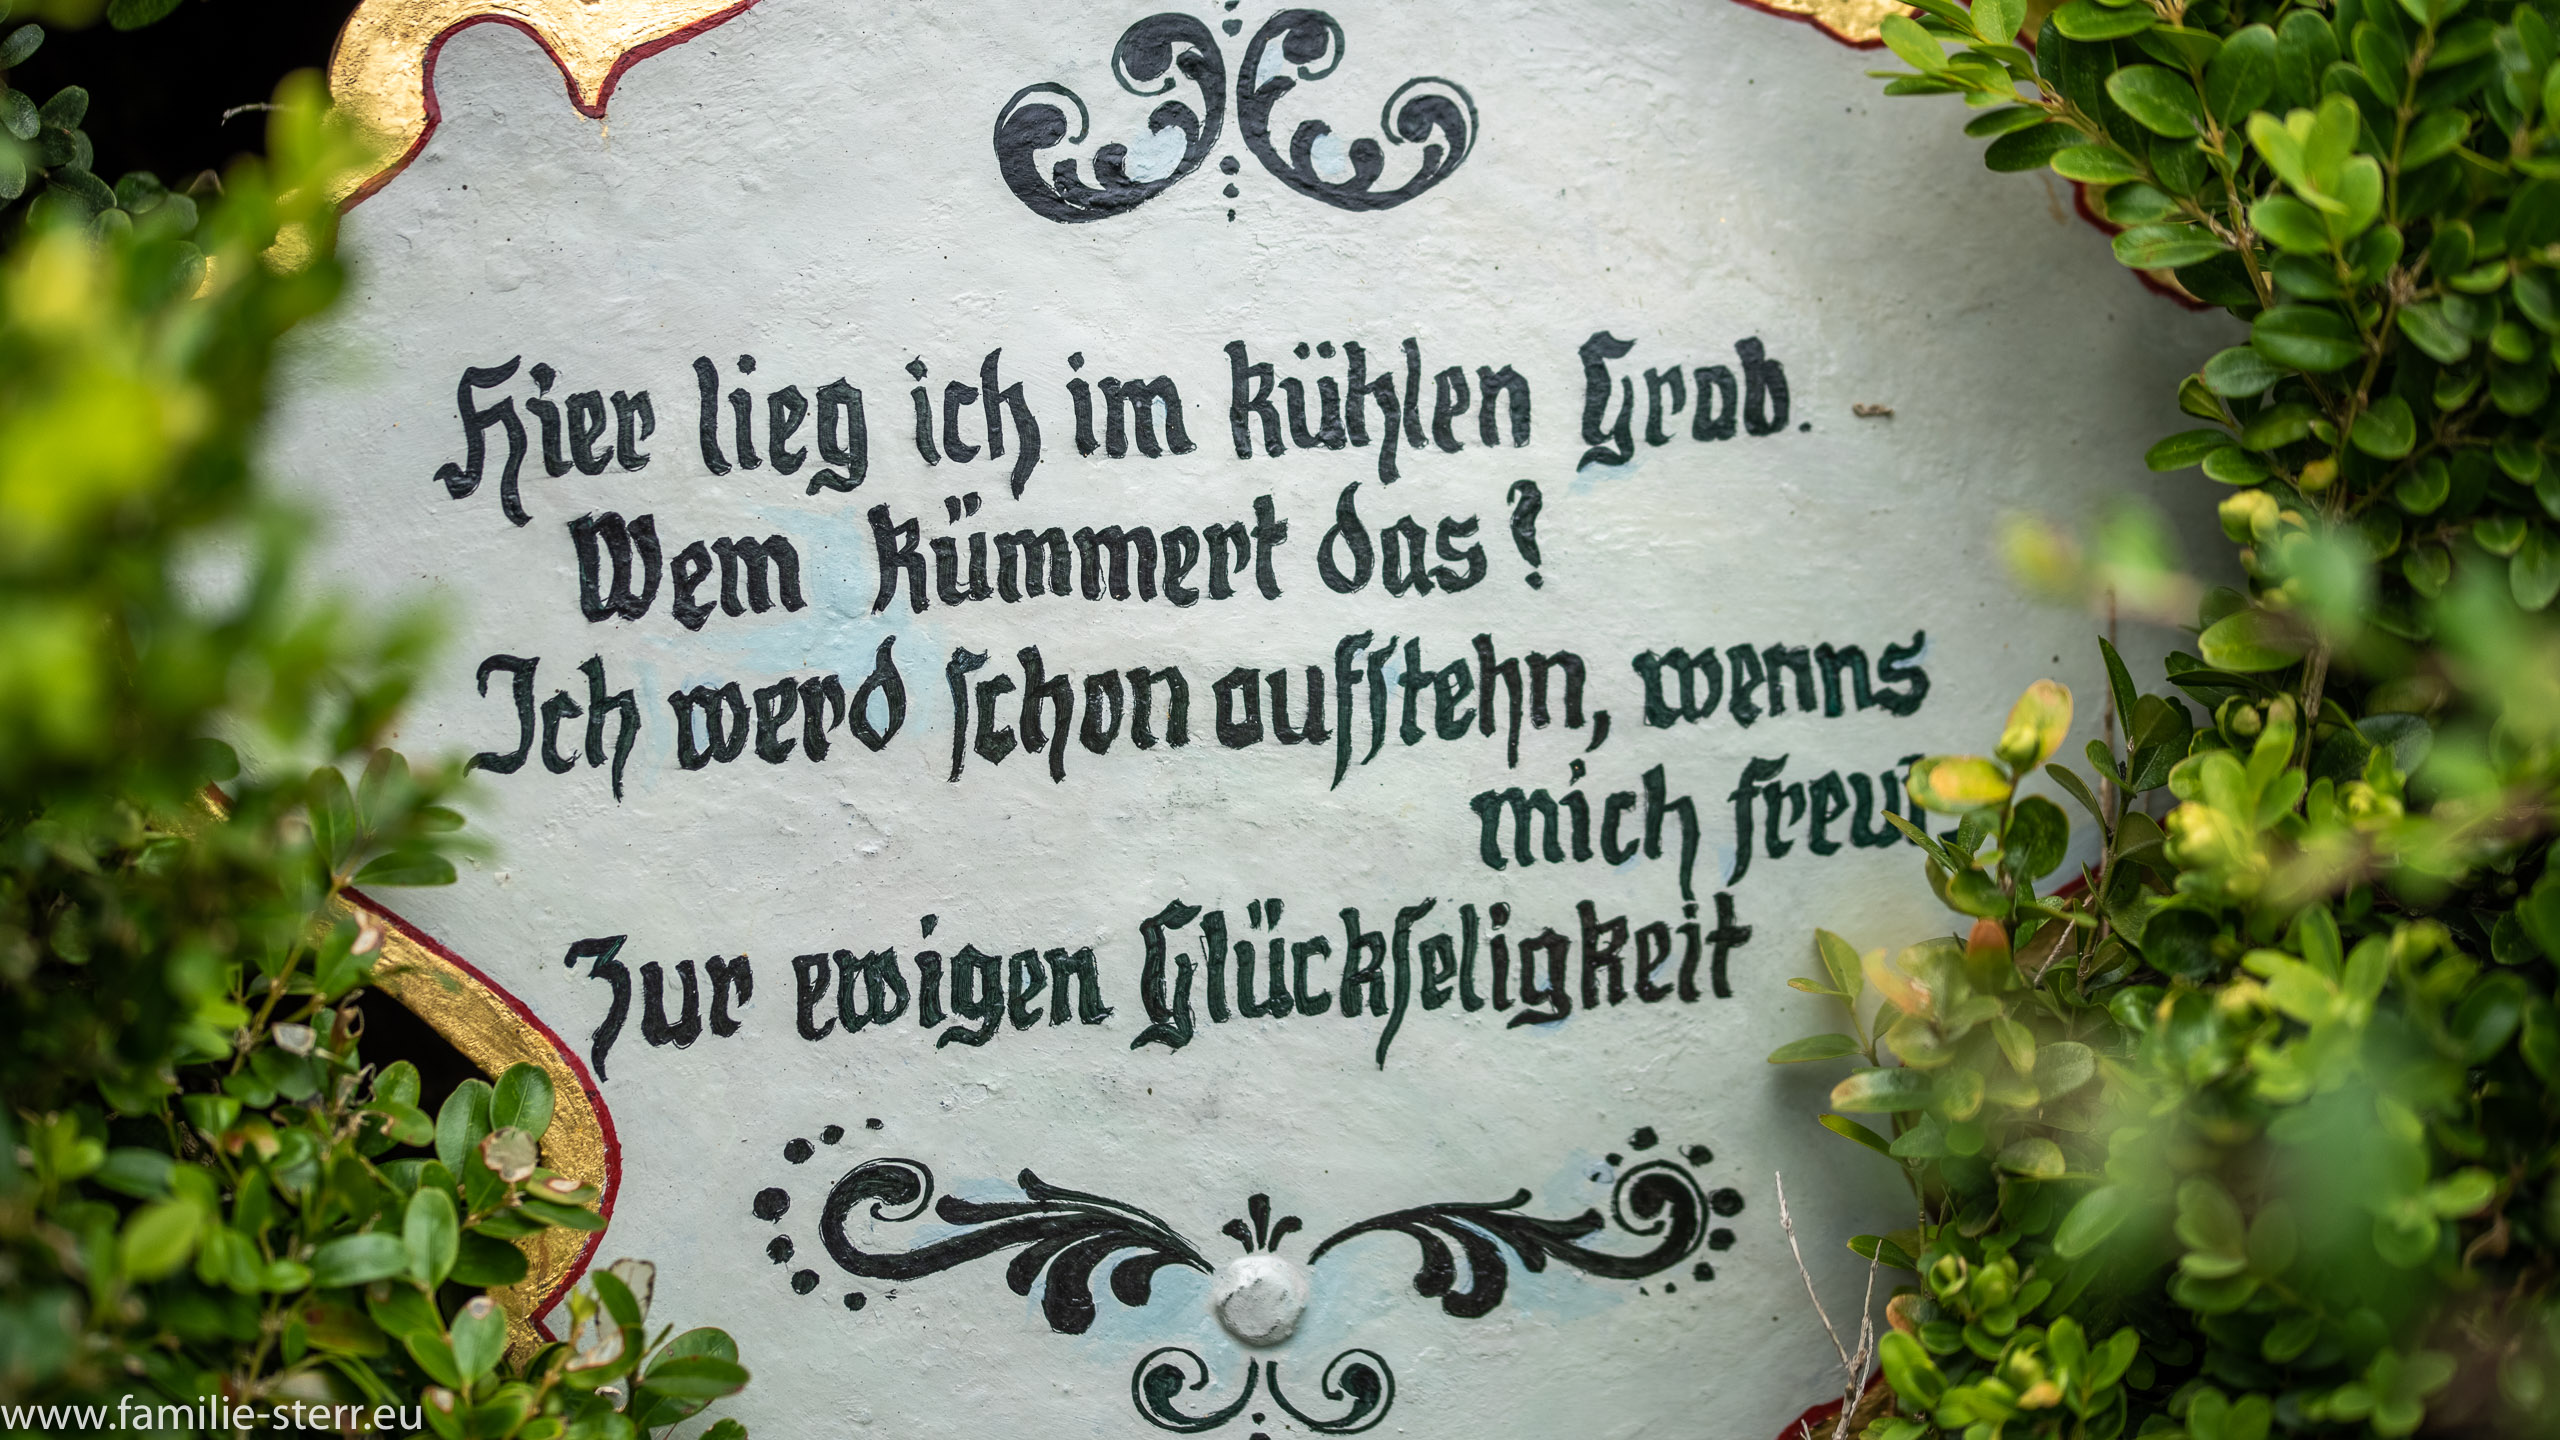 Hier lieg ich im kühlen Grab.
Wem kümmert das?
Ich werd schon aufstehn, wenns
mich freut.
Zur ewigen Glückseligkeit
www.familie-sterr.eu